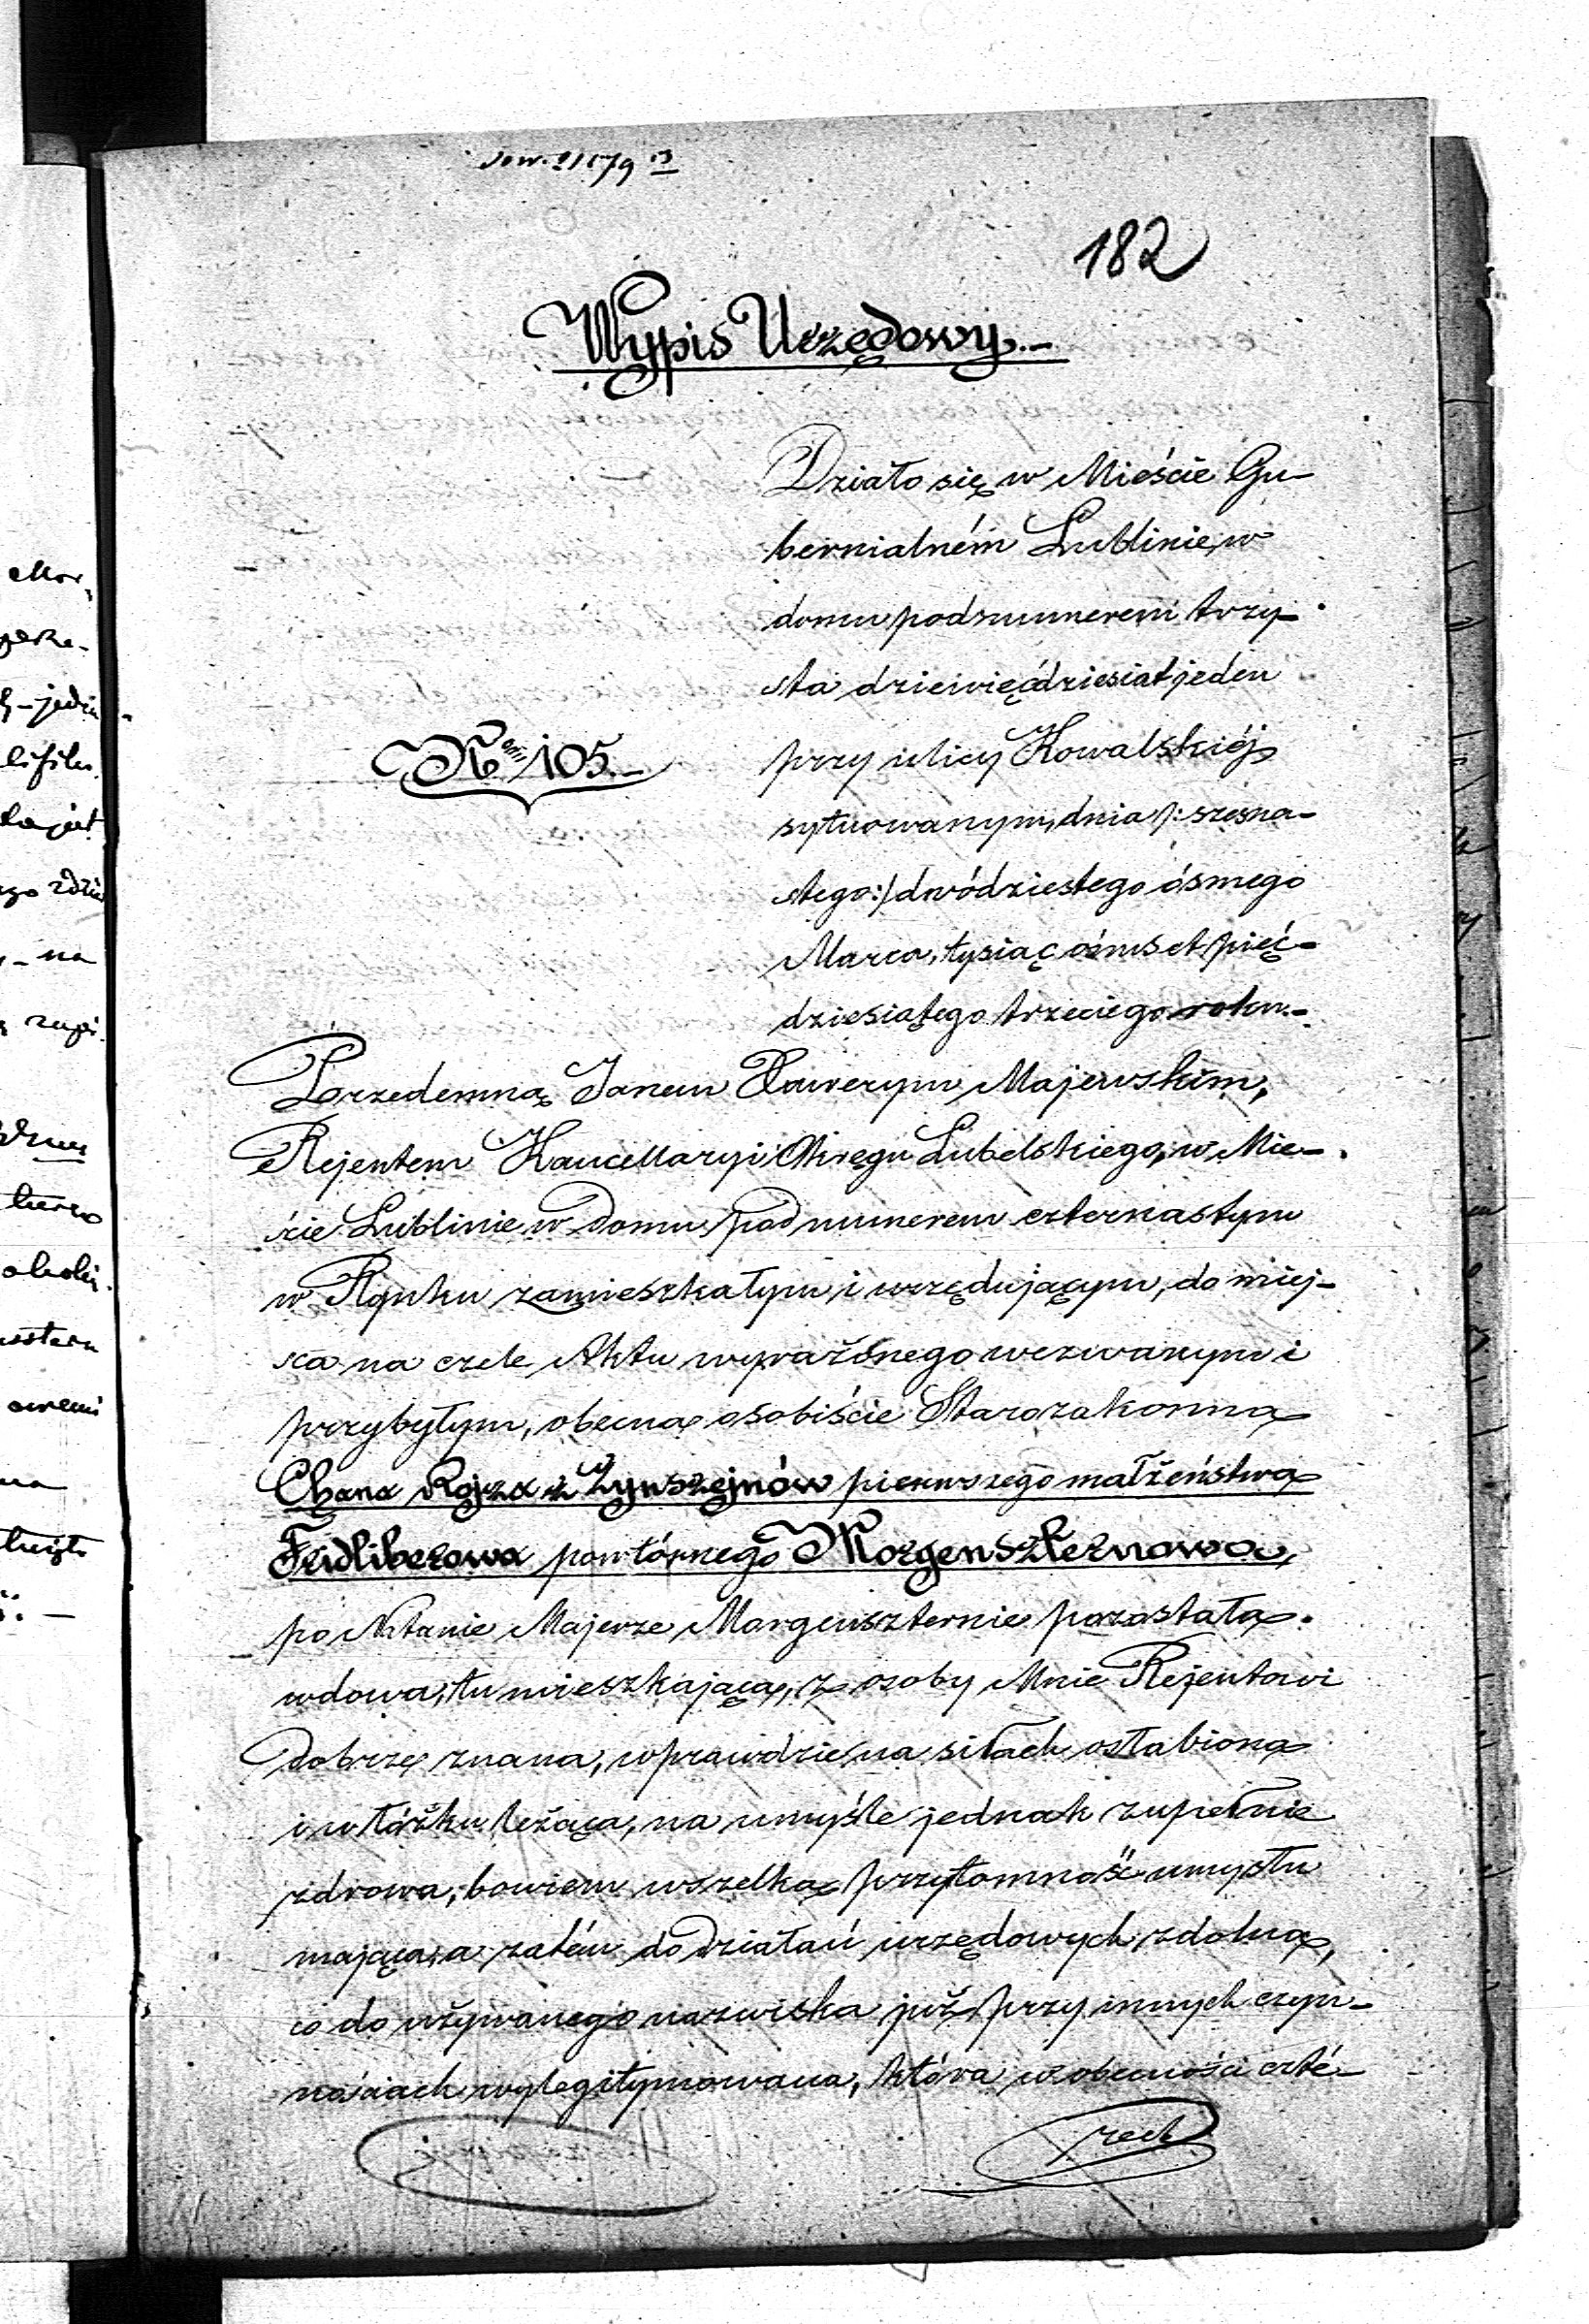 182
Wypis Urzędowy.-
Działo się w Mieście Gu-
bernialném Lublinie, w
domu pod numerem trzy-
sta dziewięćdziesiąt jeden
No 105.-
przy ulicy Kowalskiéj
sytuowanym, dnia /: szesna-
stego:/ dwódziestego ósmego
Marca, tysiąc ośmset pięć-
dziesiątego trzeciego roku.-
Przedemną Janem Xawerym Majewskim,
Rejentem Kancellaryi Okręgu Lubelskiego, w Mie-
ście Lublinie w domu pod numerem czternastym
w Rynku zamieszkałym i urzędującym, do miej-
sca na czele Aktu wyrażonego wezwanym i
przybyłym, obecna osobiście Starozakonna
Chana Rojza z Zynszejnów pierwszego małżeństwa
Fridliberowa powtórnego Morgenszternowa,
po Natanie Majerze Morgenszternie pozostała
wdowa, tu mieszkająca, z osoby Mnie Rejentowi
dobrze znana, wprawdzie na siłach osłabiona
i w łóżku leżąca, na umyśle jednak zupełnie
zdrowa, bowiem wszelką przytomność umysłu
mająca, a zatém do działań urzędowych zdolna,
co do używanego nazwiska już przy innych czyn-
nościach wylegitymowana, która w obecności czté-
rech